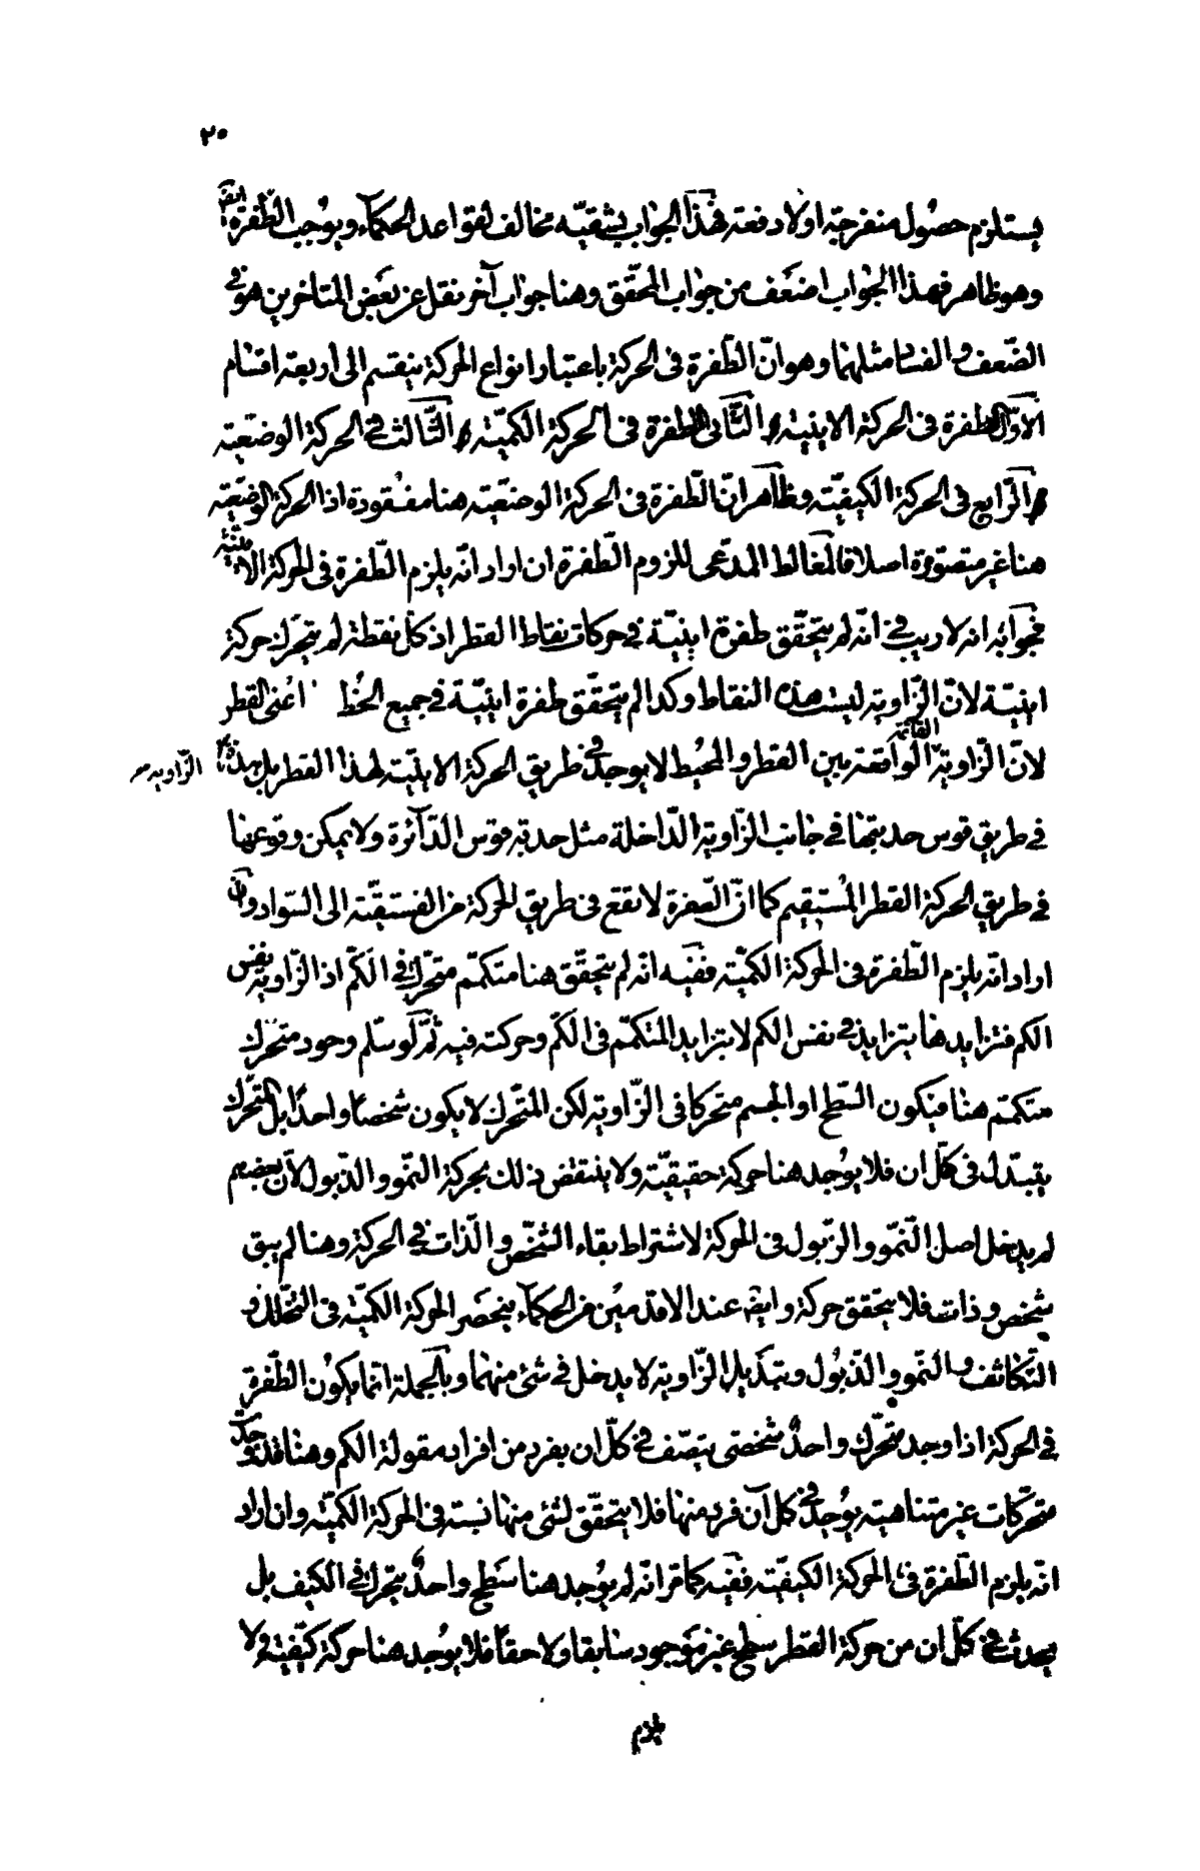 ٢٥
يستلزم حصول منفرجة اولا دفعة فهذا الجواب بشقيه مخالف لقواعد الحكماء ويوجب الطفرة ايضا
وهو ظاهر فهذا الجواب اضعف من جواب المحقق وهنا جواب آخر نقل عن بعض المتاخرين هو في
الضعف والفساد مثلهما وهو ان الطفرة فى الحركة باعتبار انواع الحركة ينقسم الى اربعة اقسام
الاول الطفرة فى الحركة الاينية والثانى الطفرة فى الحركة الكمية والثالث في الحركة الوضعية
والرابع فى الحركة الكيفية وظاهر ان الطفرة فى الحركة الوضعية هنا مفقودة اذ الحركة الوضعية
هنا غير متصورة اصلا فالمغالط المدعى للزوم الطفرة ان اراد انه يلزم الطفرة فى الحركة الاينية
فجوابه انه لا ريب في انه لم يتحقق طفرة اينية في حركات نقاط القطر اذ كل نقطة لم يتحرك حركة
اينية لان الزاوية ليست هذه النقاط وكذا لم يتحقق طفرة اينية في جميع الخط اعنى القطر
لان الزاوية القائمة الواقعة بين القطر والمحيط لا يوجد في طريق الحركة الاينية لهذا القطر بل هذه الزاوية
في طريق قوس حدبتها في جانب الزاوية الداخلة مثل حدبة قوس الدائرة ولا يمكن وقوعها
في طريق الحركة القطر المستقيم كما ان الصفرة لا تقع فى طريق الحركة من الفستقية الى السواد وان
اراد انه يلزم الطفرة فى الحركة الكمية ففيه انه لم يتحقق هنا متكمم متحرك في الكم اذ الزاوية نفس
الكم فتزايدها بتزايد في نفس الكم لا بتزايد المتكمم فى الكم وحركته فيه ثم لو سلم وجود متحرك
متكمم هنا فيكون السطح او الجسم متحركا فى الزاوية لكن المتحرك لا يكون شخصا واحدا بل المتحرك
يتبدل فى كل ان فلا يوجد هنا حركة حقيقية ولا ينتقض ذلك بحركة النمو والذبول لان بعضهم
لم يدخل اصل النمو والذبول فى الحركة لاشتراط بقاء الشخص والذات في الحركة وهنا لم يبق
شخص وذات فلا يتحقق حركة وايضا عند الاقدمين من الحكماء ينحصر الحركة الكمية فى التخلخل و
التكاثف والنمو والذبول وتبديل الزاوية لا يدخل في شئ منهما وبالجملة انما يكون الطفرة
في الحركة اذا وجد متحرك واحد شخصى يتصف في كل ان بفرد من افراد مقولة الكم وهنا قد وجد
متحركات غير متناهية يوجد في كل آن فرد منها فلا يتحقق لشئ منها نسبة فى الحركة الكمية وان اراد
انه يلزم الطفرة في الحركة الكيفية ففيه كما مر انه لم يوجد هنا سطح واحد يتحرك في الكيف بل
يحدث في كل ان من حركة القطر سطح غير موجود سابقا ولاحقا فلا يوجد هنا حركة كيفية ولا
يلزم